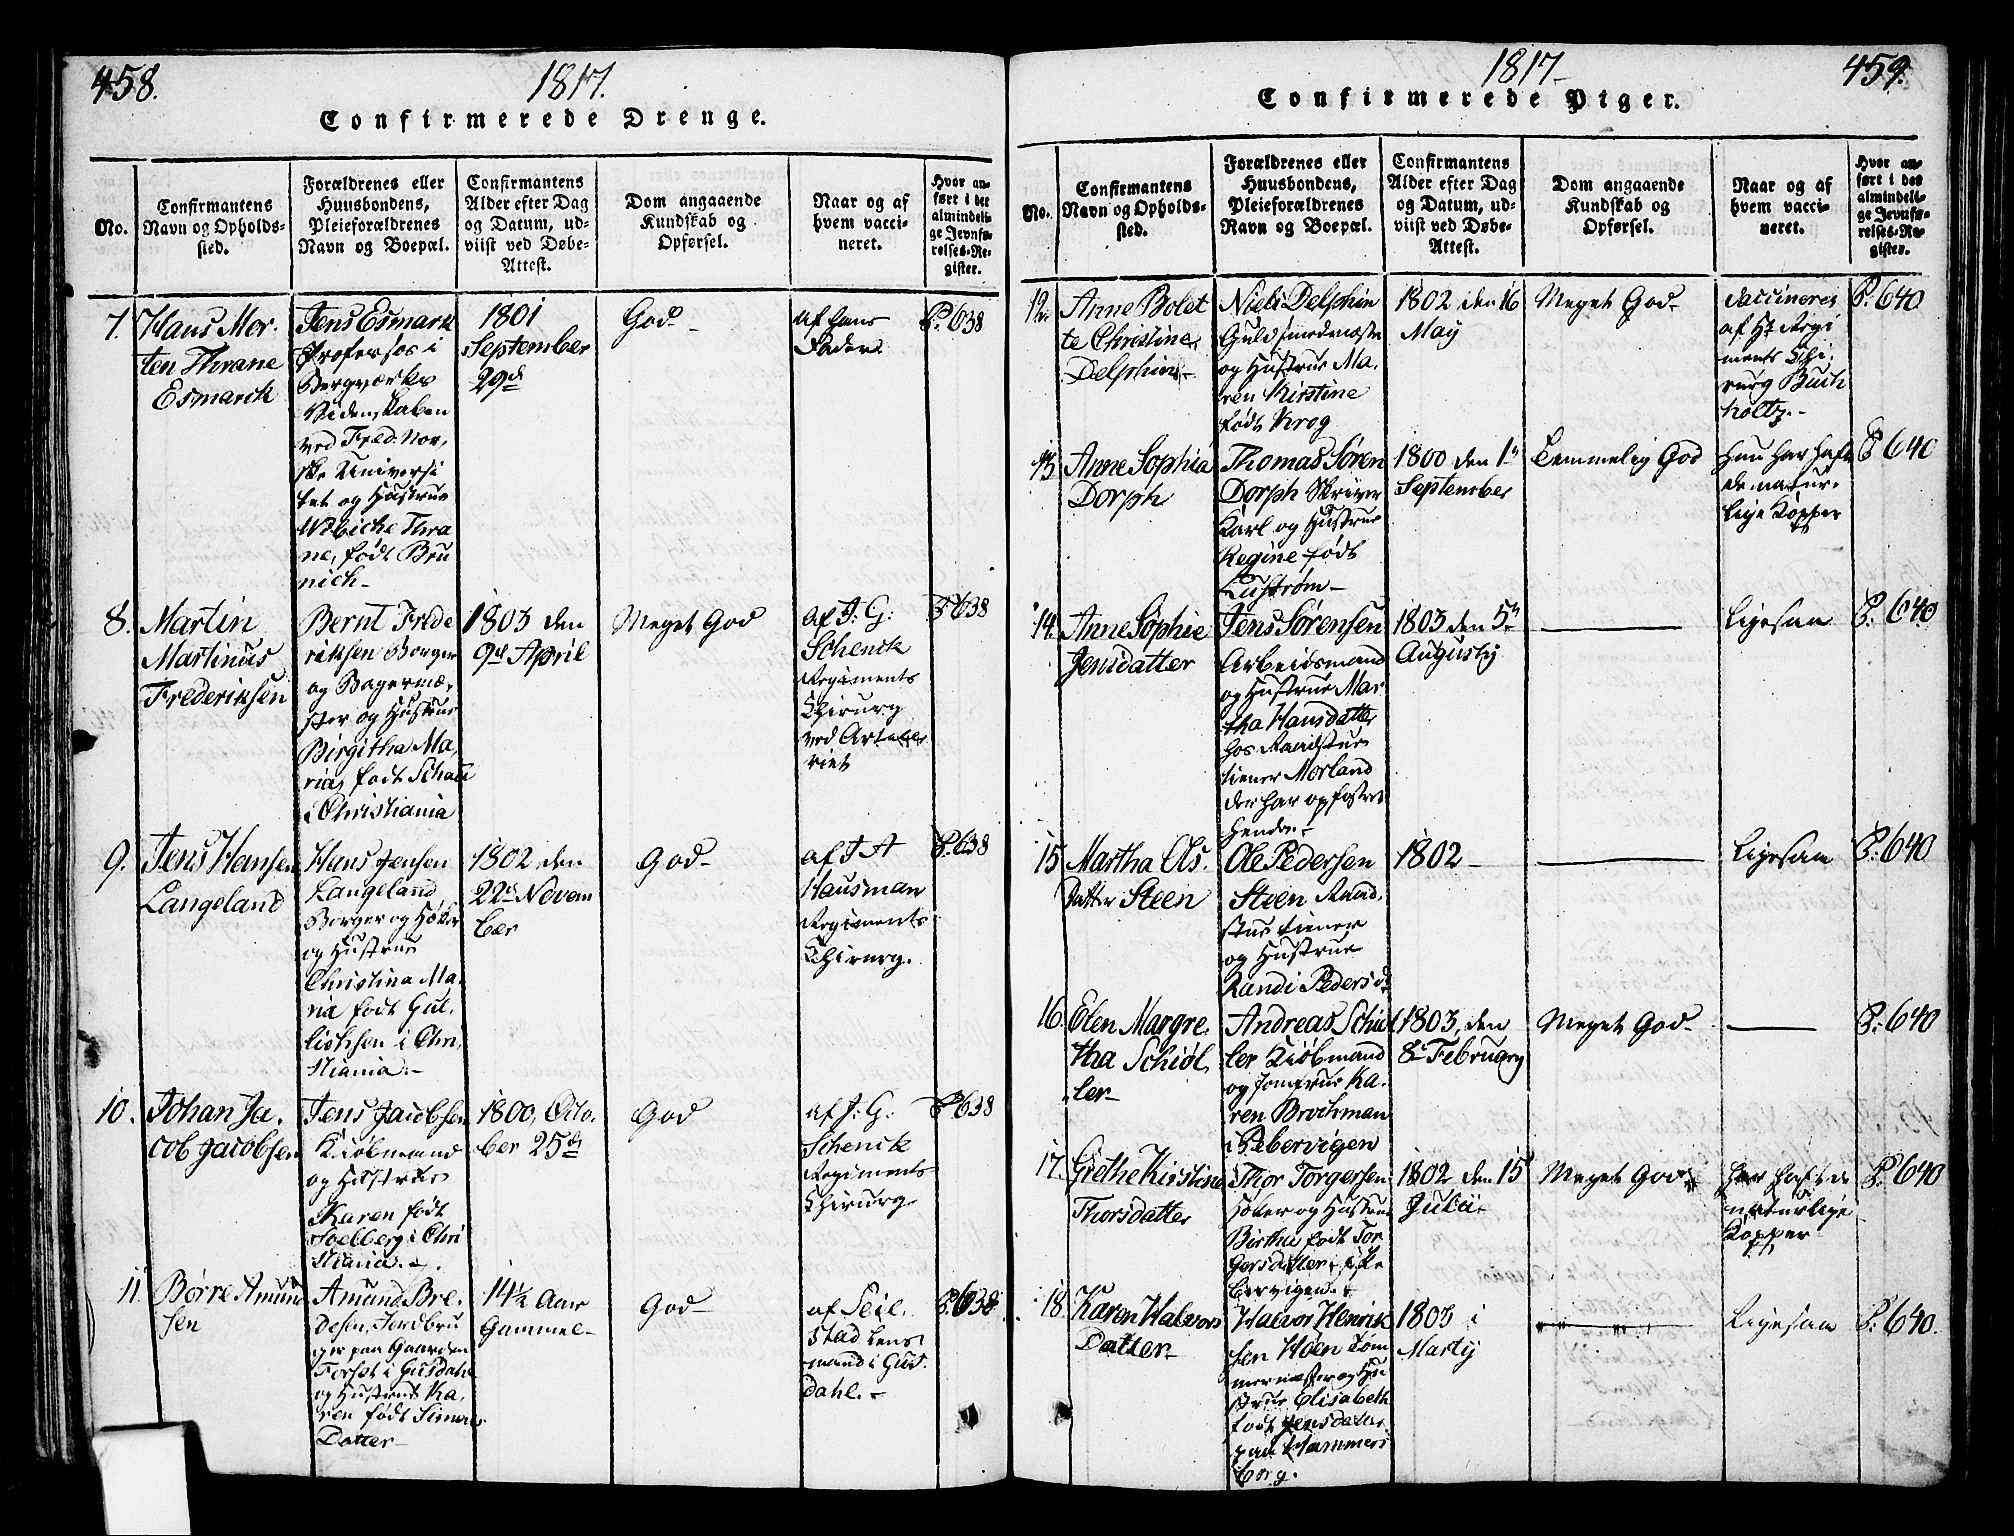 458.
1817.
Confirmerede Drenge.
No.
Confirmantens
Navn og Opholds-
sted.
Forældrenes eller
Huusbondens,
Pleieforældrenes
Navn og Boepæl.
Confirmantens
Alder efter Dag
og Datum, ud-
viist ved Døbe-
Attest.
Dom angaaende
Kundskab og
Opførsel.
Naar og af
hvem vacci-
neret.
Hvor an-
ført i det
almindeli-
ge Jevnfø-
relses-Re-
gister.
7.
Hans Mor-
ten Thrane
Esmarck
Jens Esmark
Professor i
Bergværks
Videnskaben
ved Fred. Nor,
ske Universi
tet og Hustrue
Wibicke Thra
ne, født Bru
nich-
1801
September
29de
God-
af hans
Fader
P. 638
8.
Martin
Martinus
Frederiksen
Bernt Frede
riksen Borger
og Bagermæ,
ster og Hustrue
Birgitha Ma,
ria, født
i Christiania
1803 den
9de April
Meget God
af J: G:
Schenck
Regiments
Chirurg
ved Artille
riet
P. 638
9.
Jens Hansen
Langeland
Hans Jensen
Langeland
Borger og Høker
og Hustrue
Christina Ma,
ria født Gul,
lichsen i Chri,
stiania.-
1802 den
22de Novem
ber
God-
af J A
Hausman
Regiments
Chirurg.
P. 638
10.
Johan Ja,
cob Jacobsen
Jens Jacobsen
Kiøbmand
og Hustrue
Karen født
Soelberg i Chri
stiania.-
1800, Octo,
ber 25de
God
af J: G:
Schenck
Regiments
Chirurg
P. 638
11.
Børre Amund
sen
Amund Bre,
desen, Jordbru
ger paa Gaarden
i Gusdahl
og Hustrue Ka,
ren født Simens
Datter-
14½ Aar
Gammel-
God-
af Seil,
stad Lens
mand i Gus,
dahl.-
P. 638
1817-
459.
Confirmerede Piger.
No.
Confirmantens
Navn og Opholds-
sted.
Forældrenes eller
Huusbondens,
Pleieforældrenes
Navn og Boepæl.
Confirmantens
Alder efter Dag
og Datum, ud-
viist ved Døbe-
Attest.
Dom angaaende
Kundskab og
Opførsel.
Naar og af
hvem vacci-
neret.
Hvor an-
ført i det
almindeli-
ge Jevnfø-
relses-Re-
gister.
12.
Anne Bolet
te Christine
Delphin-
Niels Delphin
Guldsmedmester
og Hustrue Ma,
ren Kirstine
født Krog
1802 den 16
May
Meget God-
Vaccineret
af Hr Regi
ments Chi,
rurg Buch
holtz.-
P. 640
13.
Anne Sophia
Dorph
Thomas Søren
Dorph Skriver
Karl og Hustrue
Regine født
Lustrøm-
1800 den 1te
September
Temmelig God
Hun har haft
de natur,
lige Kopper
P. 640
14.
Anne Sophie
Jensdatter
Jens Sørensen
Arbeidsmand
og Hustrue Mar
tha Hansdatter
hos Raadstue
tiener Morland
der har opfostret
hende.-
1803 den 5te
Augusty
Ligesaa
P. 640
15
Martha Ols,
Datter Steen
Ole Pedersen
Steen Raad,
stue tiener
og Hustrue
Randi Pedersdr
1802-
Ligesaa
P. 640
16.
Elen Margre,
tha Schiøl,
ler-
Andreas Schiøl
ler Kiøbmand
og Jomfrue Ka,
ren Brochman
i Pebervigen
1803, den
8de February
Meget God-
P. 640
17.
Grethe Kirstine
Thorsdatter
Thor Torgersen
Høker og Hustrue
Birthe født Tor
gersdatter i Pe
bervigen.-
1802 den 15
Julii-
Meget God
har haft de
naturlige
Kopper
P. 640
18.
Karen Halvors
Datter-
Halvor Henrik
sen Høen Tøm
mermester og Hu
strue Elisabeth
født Jensdatter
paa Hammers
borg.
1803 i
Marty
Ligesaa
P. 640.